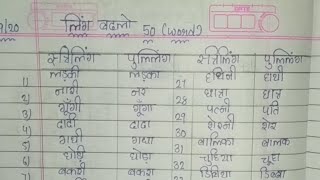 9/20 लिंग बदलो 50 (word)
स्त्रिलिंग पुल्लिंग स्त्रीलिंग पुल्लिंग
1) लड़की लड़का 27 हथिनी हाथी
2) नारी नर 28 छात्रा छात्र
3) गूंगी गूंगा 29 पत्नी पति
4) दादी दादा 30 शेरनी शेर
5) गधी गधा 31 बालिका बालक
6) घोड़ी घोड़ा 32 चुहिया चूहा
7) बकरी बकरा 33 डिबिया डिब्बा